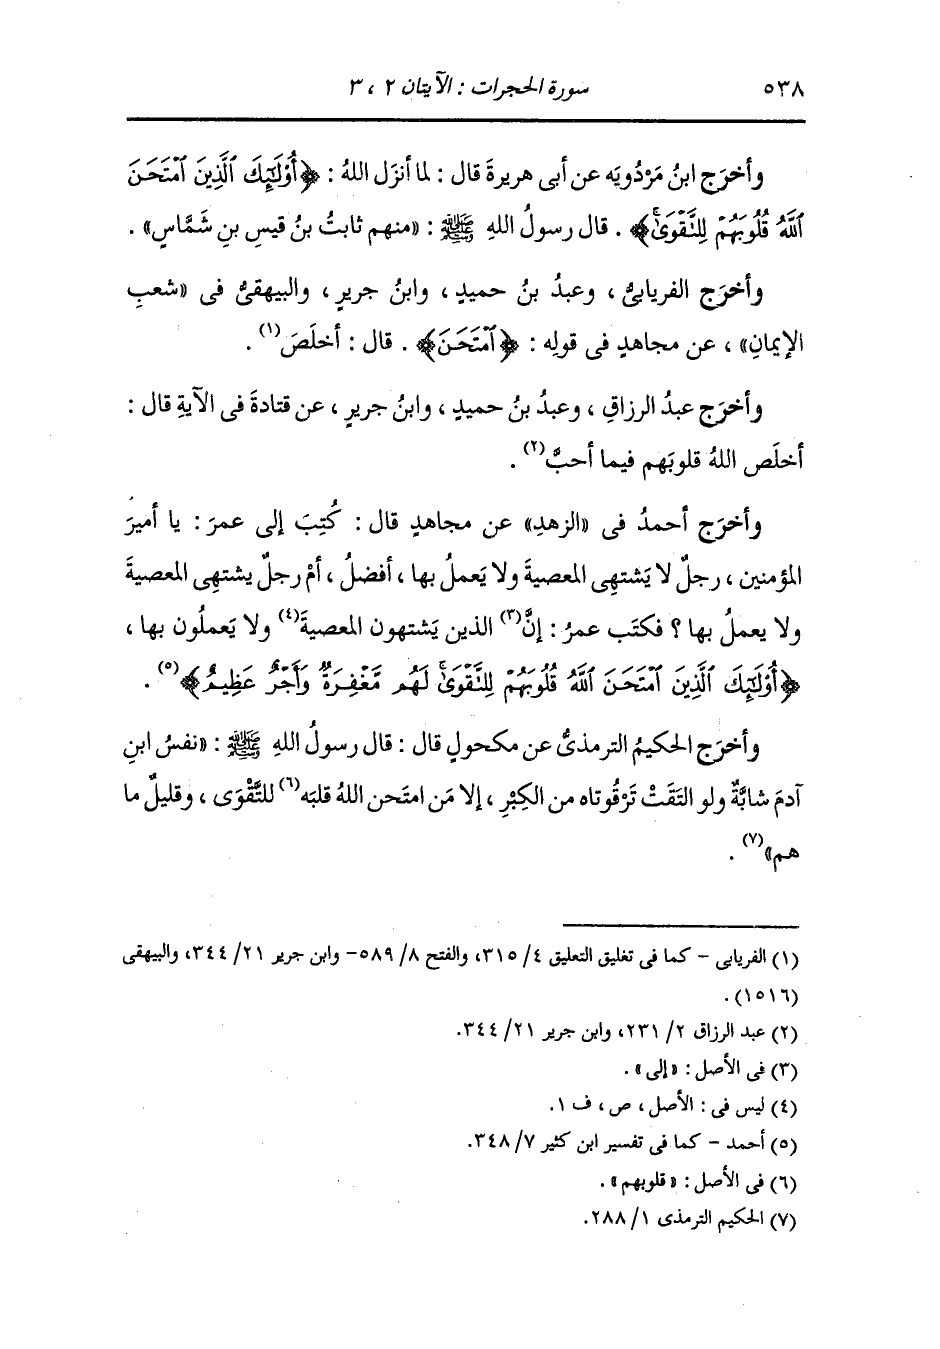 ٥٣٨ سورة الحجرات : الآيتان ٢ ، ٣
وأخرَج ابنُ مَرْدُويَه عن أبى هريرةَ قال : لما أنزَل اللهُ : ﴿أُوْلَٰٓئِكَ ٱلَّذِينَ ٱمْتَحَنَ
ٱللَّهُ قُلُوبَهُمْ لِلتَّقْوَىٰۚ﴾ . قال رسولُ اللهِ ﷺ : «منهم ثابتُ بنُ قيسِ بنِ شَمَّاسٍ» .
وأخرَج الفريابىُّ ، وعبدُ بنُ حميدٍ ، وابنُ جريرٍ ، والبيهقىُّ فى «شعبِ
الإيمانِ» ، عن مجاهدٍ فى قولِه : ﴿ٱمْتَحَنَ﴾ . قال : أخلَصَ(١) .
وأخرَج عبدُ الرزاقِ ، وعبدُ بنُ حميدٍ ، وابنُ جريرٍ ، عن قتادةَ فى الآيةِ قال :
أخلَص اللهُ قلوبَهم فيما أحبَّ(٢) .
وأخرَج أحمدُ فى «الزهدِ» عن مجاهدٍ قال : كُتِبَ إلى عمرَ : يا أميرَ
المؤمنين ، رجلٌ لا يَشتهِى المعصيةَ ولا يَعملُ بها ، أفضلُ ، أمْ رجلٌ يشتهِى المعصيةَ
ولا يعملُ بها ؟ فكتَب عمرُ : إنَّ(٣) الذين يَشتهون المعصيةَ(٤) ولا يَعملُون بها ،
﴿أُوْلَٰٓئِكَ ٱلَّذِينَ ٱمْتَحَنَ ٱللَّهُ قُلُوبَهُمْ لِلتَّقْوَىٰۚ لَهُم مَّغْفِرَةٌ وَأَجْرٌ عَظِيمٌ﴾(٥) .
وأخرَج الحكيمُ الترمذىُّ عن مكحولٍ قال : قال رسولُ اللهِ ﷺ : «نفسُ ابنِ
آدمَ شابَّةٌ ولو التَقَتْ تَرْقُوتاه من الكِبْرِ ، إلا مَن امتَحن اللهُ قلبَه(٦) للتَّقْوَى ، وقليلٌ ما
هم»(٧) .
(١) الفريابى - كما فى تغليق التعليق ٤/ ٣١٥، والفتح ٨/ ٥٨٩- وابن جرير ٢١/ ٣٤٤، والبيهقى
(١٥١٦) .
(٢) عبد الرزاق ٢/ ٢٣١، وابن جرير ٢١/ ٣٤٤.
(٣) فى الأصل : «إلى» .
(٤) ليس فى : الأصل ، ص ، ف ١.
(٥) أحمد - كما فى تفسير ابن كثير ٧/ ٣٤٨.
(٦) فى الأصل : «قلوبهم» .
(٧) الحكيم الترمذى ١/ ٢٨٨.